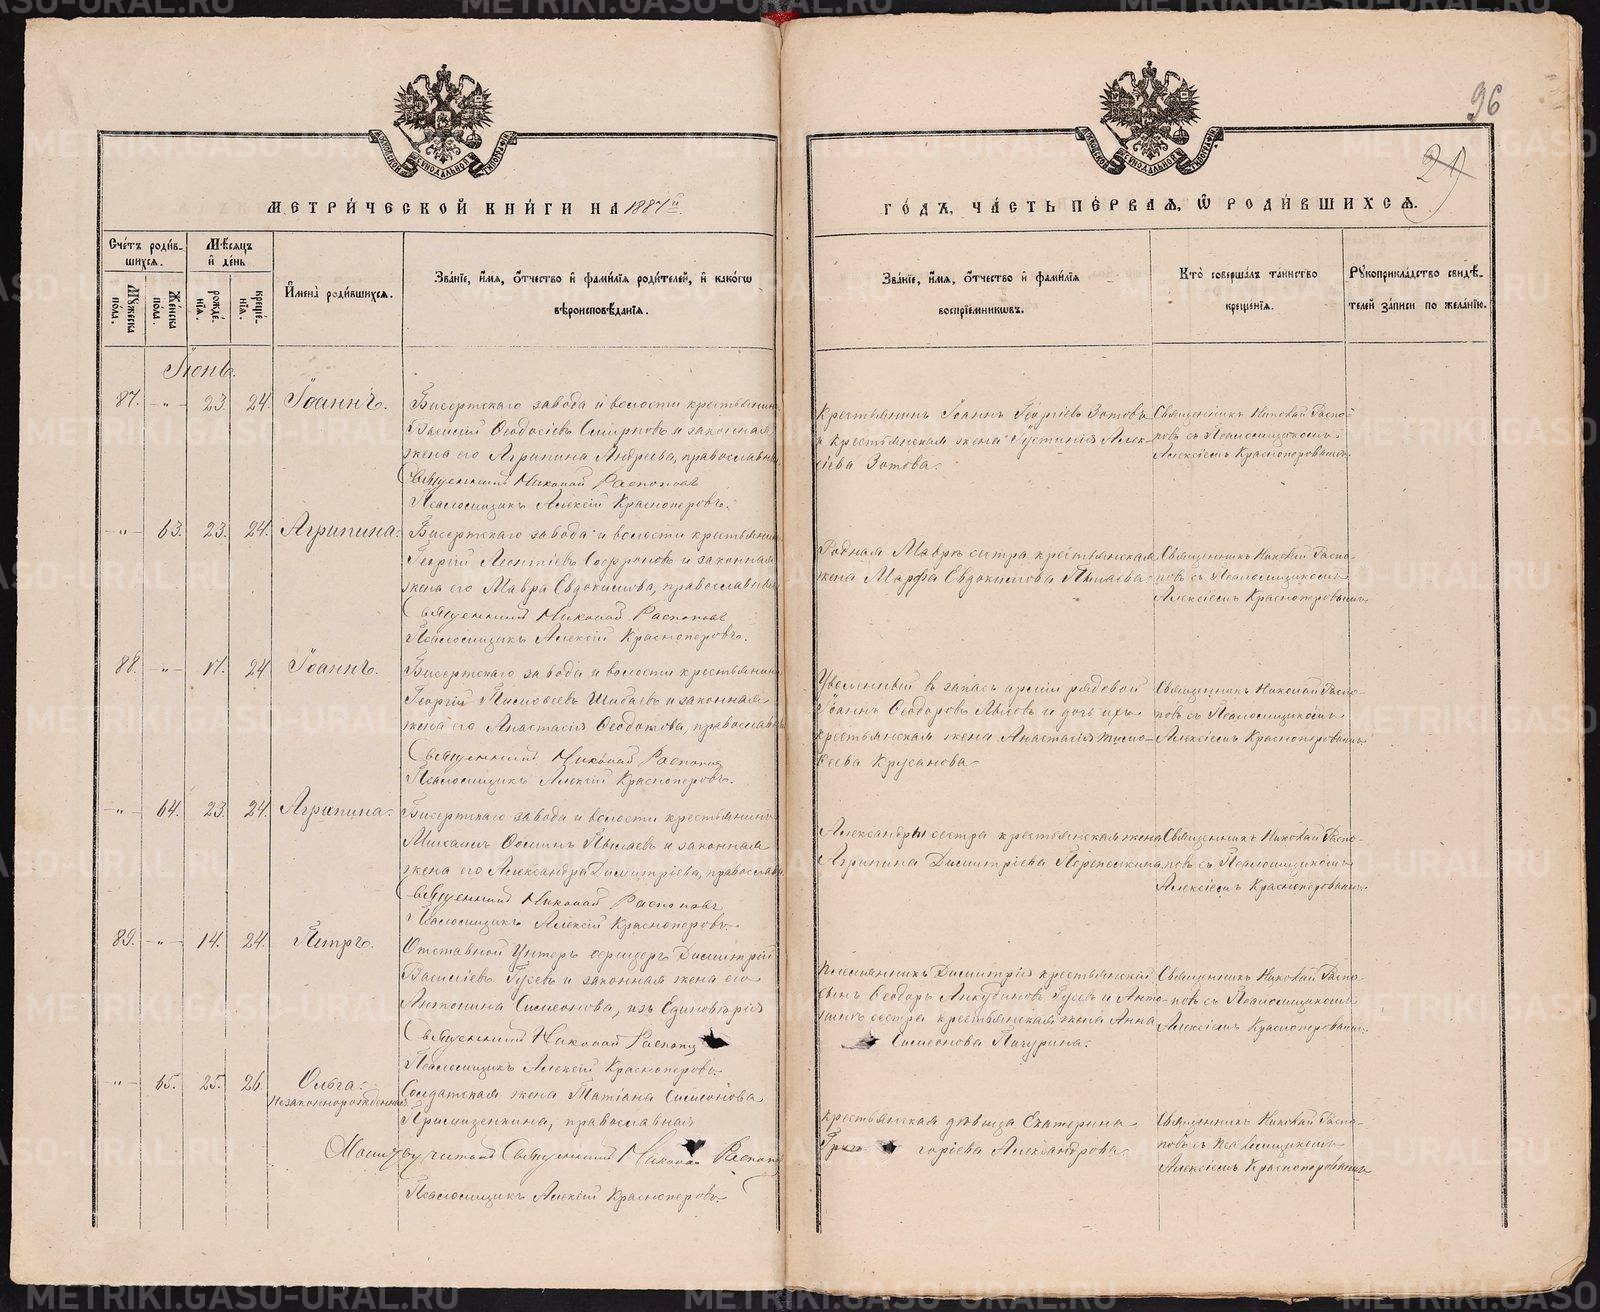 96
29
МОСКОВСКОЙ СѴНОДАЛЬНОЙ ТИПОГРАФІИ
МОСКОВСКОЙ СѴНОДАЛЬНОЙ ТИПОГРАФІИ
МЕТРИ́ЧЕСКОЙ КНИ́ГИ НА 1887й
ГО́ДЪ, ЧА́СТЬ ПЕ́РВАЯ, Ѡ РОДИ́ВШИХСЯ.
Сче́тъ роди́в-
шихся.
Мѣсяцъ
и день
Мужеска пола.
Женска пола.
рожде́нія.
креще́нія.
Имена̀ роди́вшихся.
Зва́ніе, имя, отчество и фами́лія роди́телей, и како́гѡ
вѣроисповѣ́данія.
Зва́ніе, имя, отчество и фами́лія
воспріе́мникѡвъ.
Кто̀ соверша́лъ та́инство
креще́нія.
Рукоприкла́дство свидѣ́-
телей за́писи по жела́нію.
Іюнь.
87. -„- 23. 24. Іоаннъ.
Бисертскаго завода и волости крестьянинъ
Василій Ѳеодосіевъ Смирновъ и законная
жена его Агрипина Андреева, православны
Священникъ Николай Распоповъ
Псаломщикъ Алексій Красноперовъ.
Крестьянинъ Іоаннъ Георгіевъ Зотовъ
и крестьянская жена Іустинія Алек-
сіева Зотова.
Священникъ Николай Распо-
повъ съ Псаломщикомъ
Алексіемъ Красноперовымъ.
-„- 63. 23. 24. Агрипина.
Бисертскаго завода и волости крестьянинъ
Георгій Леонтіевъ Софроновъ и законная
жена его Мавра Евдокимова, православны
Священникъ Николай Распоповъ
Псаломщикъ Алексій Красноперовъ.
Родная Мавры сестра крестьянская
жена Марфа Евдокимова Пылаева.
Священникъ Николай Распо-
повъ съ Псаломщикомъ
Алексіемъ Красноперовымъ
88. -„- 17. 24. Іоаннъ.
Бисертскаго завода и волости крестьянинъ
Георгій Тимоѳеевъ Шибаевъ и законная
жена его Анастасія Ѳеодотова, православны
Священникъ Николай Распоповъ
Псаломщикъ Алексій Красноперовъ.
Уволенный въ запасъ арміи рядовой
Іоаннъ Ѳеодоровъ и дочь ихъ
крестьянская жена Анастасія Тимо-
ѳеева Крусанова.
Священникъ Николай Распо-
повъ съ Псаломщикомъ
Алексіемъ Красноперовымъ.
-„- 64. 23. 24. Агрипина.
Бисертскаго завода и волости крестьянинъ
Михаилъ Ѳоминъ Пылаевъ и законная
жена его Александра Димитріева, православны
Священникъ Николай Распоповъ
Псаломщикъ Алексій Красноперовъ.
Александры сестра крестьянская жена
Агрипина Димитріева Перепелкина
Священникъ Николай Распо-
повъ съ Псаломщикомъ
Алексіемъ Красноперовымъ.
89. -„- 14. 24. Петръ.
Отставной Унтеръ офицеръ Димитрій
Василіевъ Гусевъ и законная жена его
Антонина Симеонова, изъ Единовѣрія
Священникъ Николай Распопо
Псаломщикъ Алексій Красноперовъ.
Племянникъ Димитрія крестьянскій
сынъ Ѳеодоръ Анкудиновъ Гусевъ и Анто-
нины сестра крестьянская жена Анна
Симеонова Пичурина.
Священникъ Николай Распо-
повъ съ Псаломщикомъ
Алексіемъ Красноперовымъ.
-„- 65. 25. 26. Ольга.
Незаконнорожденная
Солдатская жена Татіана Симеонова
православная
Молитву читалъ Священникъ Николай Распопо
Псаломщикъ Алексій Красноперовъ.
Крестьянская дѣвица Екатерина
Григоріева Александрова.
Священникъ Николай Распо-
повъ съ Псаломщикомъ
Алексіемъ Красноперовымъ
METRIKI.GASO-URAL.RU